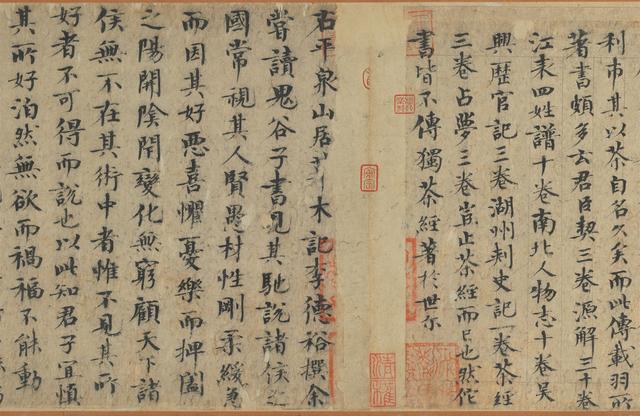 利市其以茶自名久矣而此傳載羽所
著書頗多云君臣契三卷源解三十卷
江表四姓譜十卷南北人物志十卷吳
興歷官記三卷湖州刺史記一卷茶經
三卷占夢三卷豈止茶經而已也然佗
書皆不傳獨茶經著於世尔
右平泉山居草木記李德裕撰余
嘗讀鬼谷子書見其馳說諸侯之
國常視其人賢愚材性剛柔緩急
而因其好惡喜懼憂樂而捭闔
之陽開陰閉變化無窮顧天下諸
侯無不在其術中者惟不見其所
好者不可得而說也以此知君子宜慎
其所好泊然無欲而禍福不能動